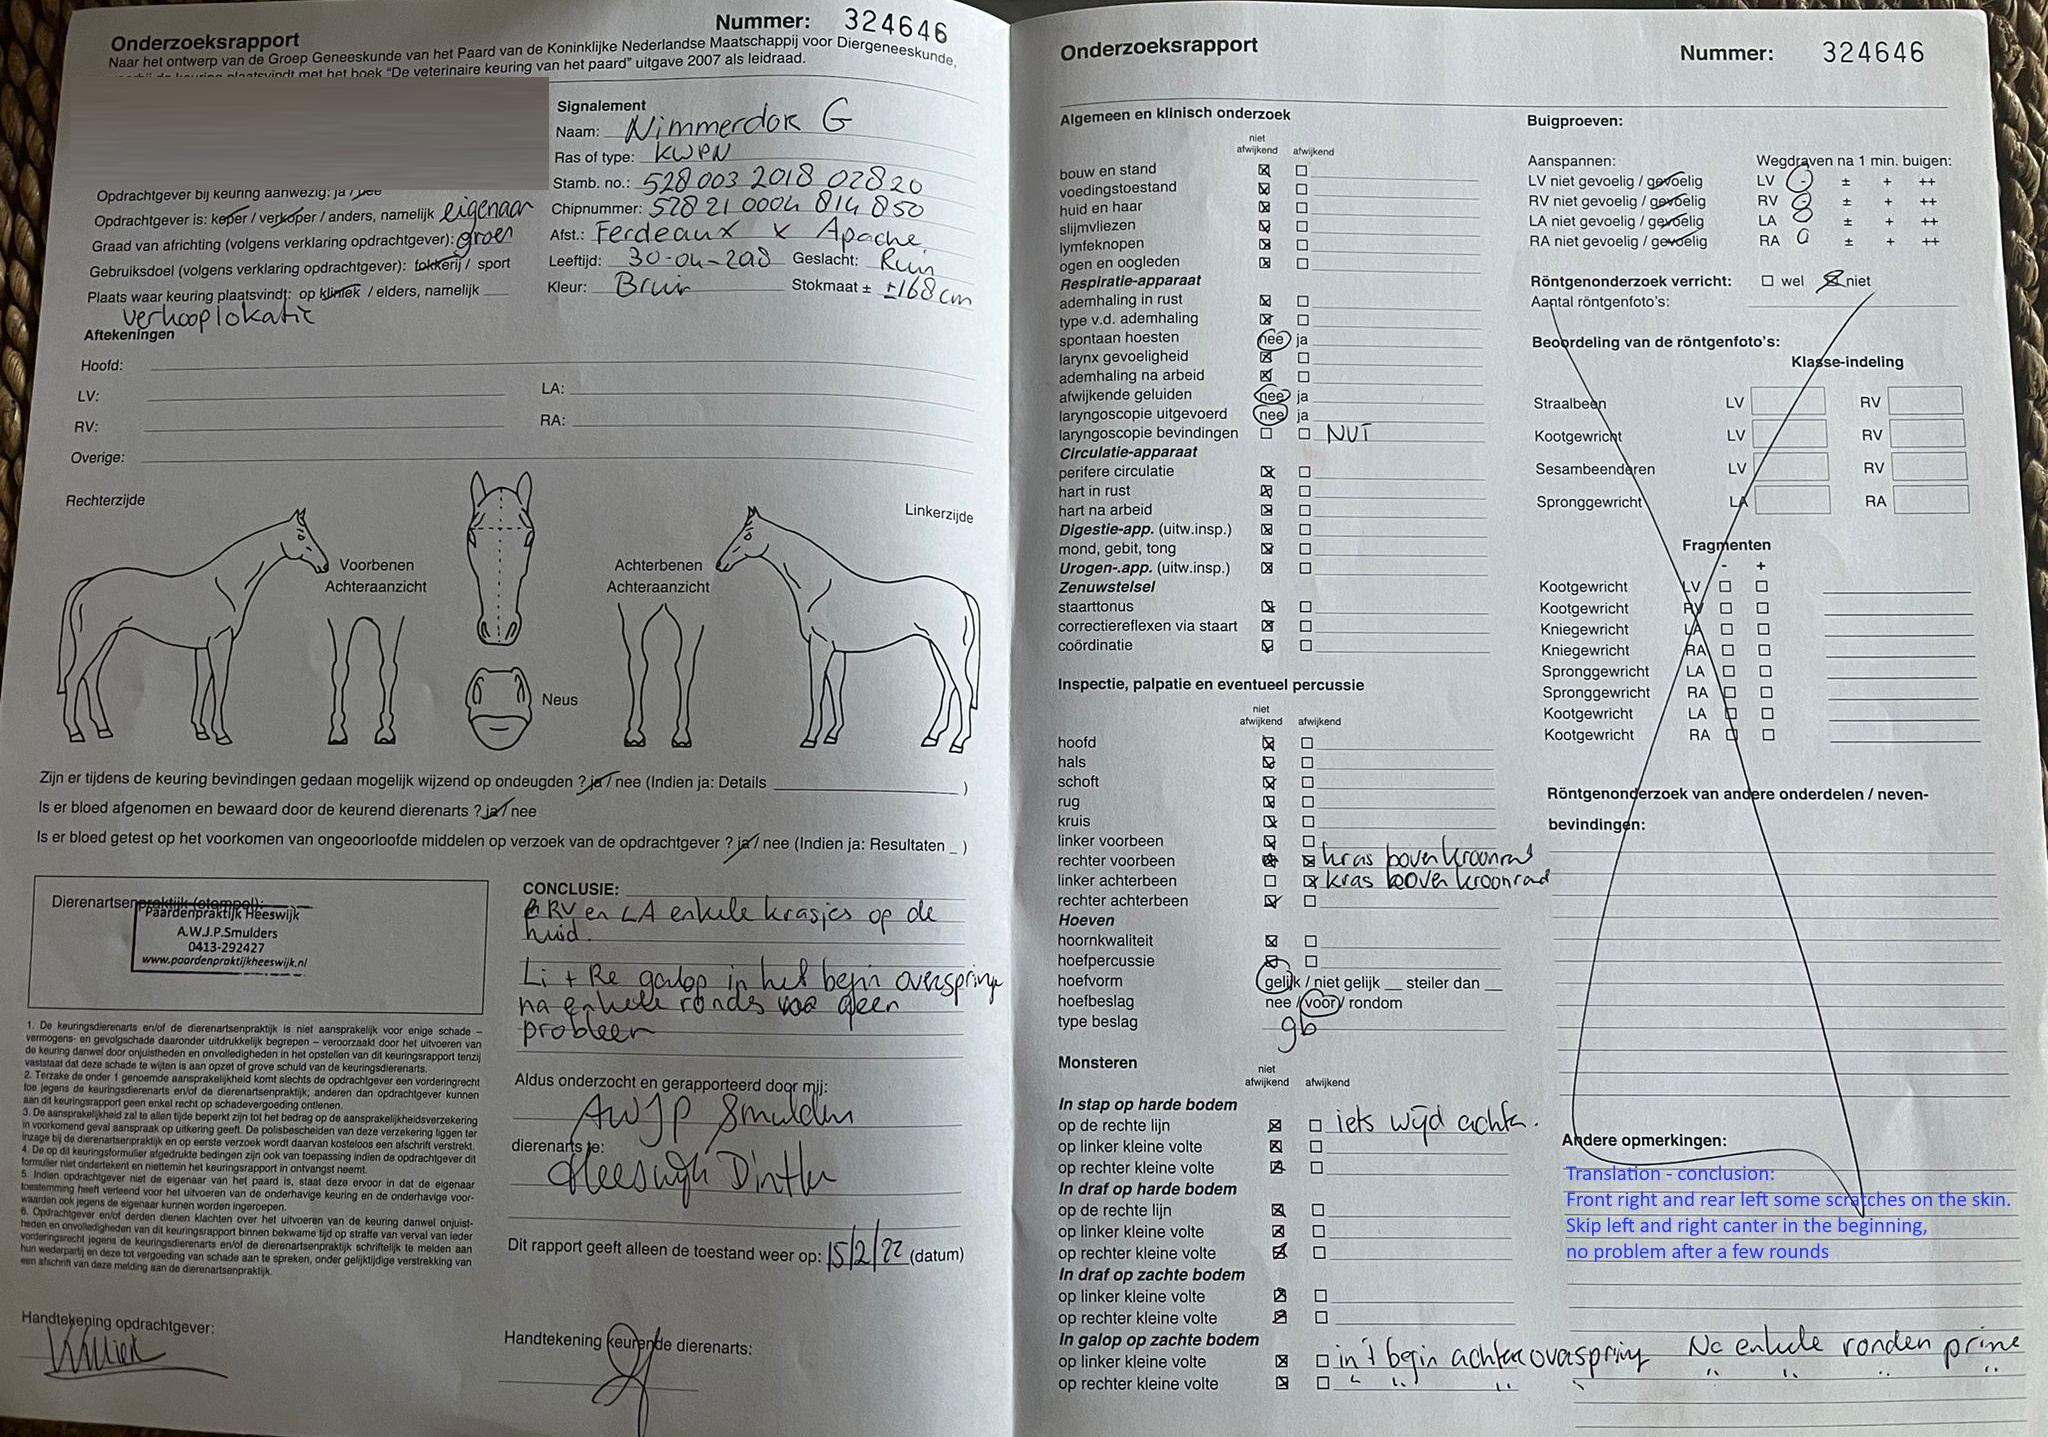 Nummer: 324646
Onderzoeksrapport
Naar het ontwerp van de Groep Geneeskunde van het Paard van de Koninklijke Nederlandse Maatschappij voor Diergeneeskunde,
waarbij de keuring plaatsvindt met het boek "De veterinaire keuring van het paard" uitgave 2007 als leidraad.
Opdrachtgever bij keuring aanwezig: ja / nee
Opdrachtgever is: koper / verkoper / anders, namelijk eigenaar
Graad van africhting (volgens verklaring opdrachtgever): groen
Gebruiksdoel (volgens verklaring opdrachtgever): fokkerij / sport
Plaats waar keuring plaatsvindt: op kliniek / elders, namelijk
verkooplokatie
Signalement
Naam: Nimmerdor G
Ras of type: KWPN
Stamb. no.: 528 003 2018 02820
Chipnummer: 528 21 0004 814 850
Afst.: Ferdeaux x Apache
Leeftijd: 30-04-2018 Geslacht: Ruin
Kleur: Bruin Stokmaat ± ±168 cm
Aftekeningen
Hoofd:
LV: LA:
RV: RA:
Overige:
Rechterzijde
Linkerzijde
Voorbenen
Achteraanzicht
Achterbenen
Achteraanzicht
Neus
Zijn er tijdens de keuring bevindingen gedaan mogelijk wijzend op ondeugden ? ja / nee (Indien ja: Details )
Is er bloed afgenomen en bewaard door de keurend dierenarts ? ja / nee
Is er bloed getest op het voorkomen van ongeoorloofde middelen op verzoek van de opdrachtgever ? ja / nee (Indien ja: Resultaten _ )
Dierenartsenpraktijk (stempel):
Paardenpraktijk Heeswijk
A.W.J.P.Smulders
0413-292427
www.paardenpraktijkheeswijk.nl
CONCLUSIE:
RV en LA enkele krasjes op de
huid.
Li + Re galop in het begin overspringen
na enkele rondes geen
probleem
1. De keuringsdierenarts en/of de dierenartsenpraktijk is niet aansprakelijk voor enige schade –
vermogens- en gevolgschade daaronder uitdrukkelijk begrepen – veroorzaakt door het uitvoeren van
de keuring danwel door onjuistheden en onvolledigheden in het opstellen van dit keuringsrapport tenzij
vaststaat dat deze schade te wijten is aan opzet of grove schuld van de keuringsdierenarts.
2. Terzake de onder 1 genoemde aansprakelijkheid komt slechts de opdrachtgever een vorderingrecht
toe jegens de keuringsdierenarts en/of de dierenartsenpraktijk; anderen dan opdrachtgever kunnen
aan dit keuringsrapport geen enkel recht op schadevergoeding ontlenen.
3. De aansprakelijkheid zal te allen tijde beperkt zijn tot het bedrag op de aansprakelijkheidsverzekering
in voorkomend geval aanspraak op uitkering geeft. De polisbescheiden van deze verzekering liggen ter
inzage bij de dierenartsenpraktijk en op eerste verzoek wordt daarvan kosteloos een afschrift verstrekt.
4. De op dit keuringsformulier afgedrukte bedingen zijn ook van toepassing indien de opdrachtgever dit
formulier niet ondertekent en niettemin het keuringsrapport in ontvangst neemt.
5. Indien opdrachtgever niet de eigenaar van het paard is, staat deze ervoor in dat de eigenaar
toestemming heeft verleend voor het uitvoeren van de onderhavige keuring en de onderhavige voor-
waarden ook jegens de eigenaar kunnen worden ingeroepen.
6. Opdrachtgever en/of derden dienen klachten over het uitvoeren van de keuring danwel onjuist-
heden en onvolledigheden van dit keuringsrapport binnen bekwame tijd op straffe van verval van ieder
vorderingsrecht jegens de keuringsdierenarts en/of de dierenartsenpraktijk schriftelijk te melden aan
hun wederpartij en deze tot vergoeding van schade aan te spreken, onder gelijktijdige verstrekking van
een afschrift van deze melding aan de dierenartsenpraktijk.
Aldus onderzocht en gerapporteerd door mij:
AWJP Smulders
dierenarts te:
Heeswijk Dinther
Dit rapport geeft alleen de toestand weer op: 15/2/22 (datum)
Handtekening opdrachtgever:
Handtekening keurende dierenarts:
Onderzoeksrapport
Nummer: 324646
Algemeen en klinisch onderzoek
niet
afwijkend afwijkend
bouw en stand
voedingstoestand
huid en haar
slijmvliezen
lymfeknopen
ogen en oogleden
Respiratie-apparaat
ademhaling in rust
type v.d. ademhaling
spontaan hoesten nee ja
larynx gevoeligheid
ademhaling na arbeid
afwijkende geluiden nee ja
laryngoscopie uitgevoerd nee ja
laryngoscopie bevindingen NUT
Circulatie-apparaat
perifere circulatie
hart in rust
hart na arbeid
Digestie-app. (uitw.insp.)
mond, gebit, tong
Urogen-.app. (uitw.insp.)
Zenuwstelsel
staarttonus
correctiereflexen via staart
coördinatie
Inspectie, palpatie en eventueel percussie
niet
afwijkend afwijkend
hoofd
hals
schoft
rug
kruis
linker voorbeen
rechter voorbeen kras boven kroonrand
linker achterbeen kras boven kroonrand
rechter achterbeen
Hoeven
hoornkwaliteit
hoefpercussie
hoefvorm gelijk / niet gelijk __ steiler dan __
hoefbeslag nee / voor / rondom
type beslag gb
Monsteren
niet
afwijkend afwijkend
In stap op harde bodem
op de rechte lijn iets wijd achter.
op linker kleine volte
op rechter kleine volte
In draf op harde bodem
op de rechte lijn
op linker kleine volte
op rechter kleine volte
In draf op zachte bodem
op linker kleine volte
op rechter kleine volte
In galop op zachte bodem
op linker kleine volte in 't begin achter overspring Na enkele ronden prima
op rechter kleine volte " " " " " " " "
Buigproeven:
Aanspannen: Wegdraven na 1 min. buigen:
LV niet gevoelig / gevoelig LV - ± + ++
RV niet gevoelig / gevoelig RV - ± + ++
LA niet gevoelig / gevoelig LA - ± + ++
RA niet gevoelig / gevoelig RA - ± + ++
Röntgenonderzoek verricht: wel niet
Aantal röntgenfoto's:
Beoordeling van de röntgenfoto's:
Klasse-indeling
Straalbeen LV RV
Kootgewricht LV RV
Sesambeenderen LV RV
Spronggewricht LA RA
Fragmenten
- +
Kootgewricht LV
Kootgewricht RV
Kniegewricht LA
Kniegewricht RA
Spronggewricht LA
Spronggewricht RA
Kootgewricht LA
Kootgewricht RA
Röntgenonderzoek van andere onderdelen / neven-
bevindingen:
Andere opmerkingen:
Translation - conclusion:
Front right and rear left some scratches on the skin.
Skip left and right canter in the beginning,
no problem after a few rounds